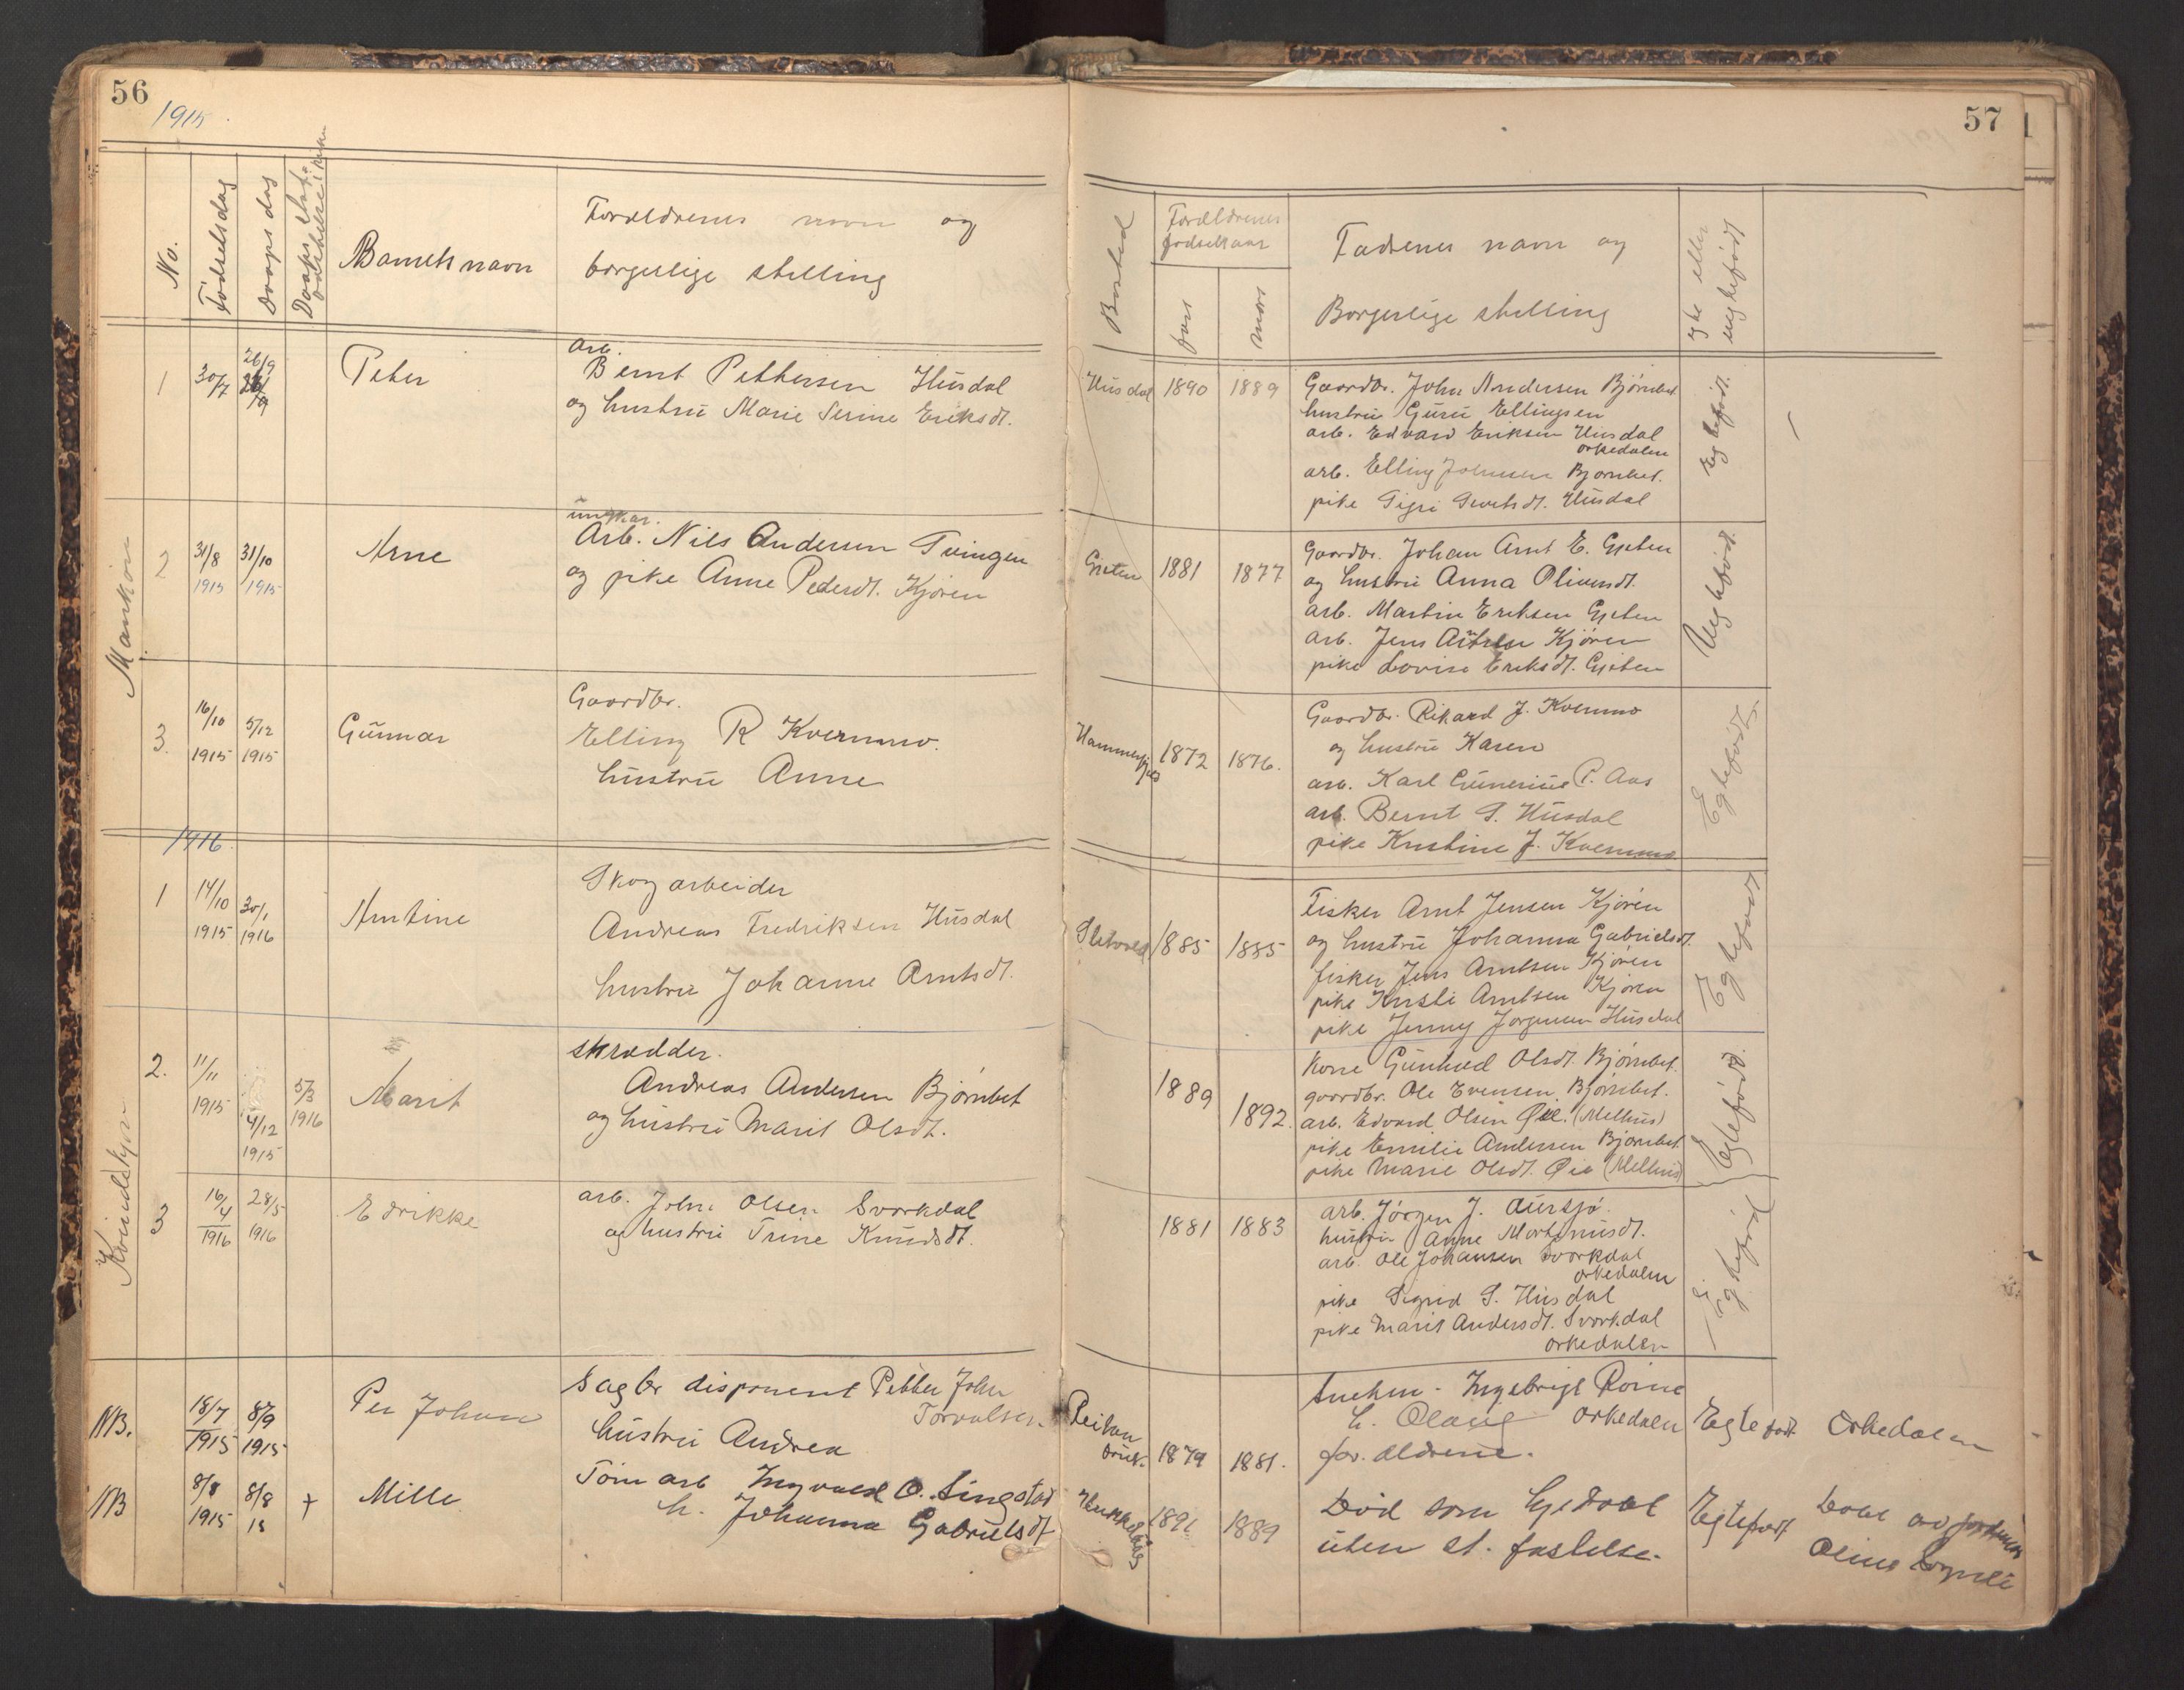 56
1915
No.
Födselsdag
Daaps dag
Barnets navn
Foreldrenes navn og
borgerlige stilling
Mankjøn
1
30/7
26/9
Peter
arb.
Bernt Pettersen Husdal
og hustru Marie Serine Eriksdt.
2
31/8
1915
31/10
1915
Arne
ungkar.
Arb. Nils Andersen Tvingen
og pike Anne Pedersdt. Kjören
3.
16/10
1915
5/12
1915
Gunnar
Gaardbr.
Elling R Kvernmo.
hustru Anne
1916.
Kvindekjøn
1
14/10
1915
30/1
1916
Arntine
Skogarbeider
Andreas Fredriksen Husdal
hustru Johanne Arntsdt.
2.
11/11
1915
4/12
1915
5/3
1916
Marit
skrædder.
Andreas Andersen Bjørnbet
og hustru Marit Olsdt.
3
16/4
1916
28/5
1916
Edrikke
arb. John Olsen Svorkdal
og hustru Trine Knudsdt.
NB.
18/7
1915
8/9
1915
Per Johan
Sagbr disponent Petter John
Torvalsen
hustru Andrea
NB
8/8
1915
8/8
15
+
Mille
Tom arb Ingvald O. Singstad
h. Johanna Gabrielsdt
57
Bosted
Foreldrenes
fødselsaar
fars
mors
Fadernes navn og
Borgerlige stilling
egte eller
uegtefödt
Husdal
1890
1889
Gaardbr. John Andersen Bjørnbet
hustru Guru Ellingsen
arb. Edvard Eriksen Husdal
orkedalen
arb. Elling Johnsen Bjørnbet.
pike Sigri Sivertsdt. Husdal
Egtefødt.
Gjeten
1881
1877
Gaardbr. Johan Arnt E. Gjeten
og hustru Anna Oliversdt.
arb. Martin Eriksen Gjeten
arb. Jens Arntsen Kjören
pike Lovise Eriksdt. Gjeten
Uegtefødt.
1872
1876.
Gaardbr. Rikard J. Kvernmo
og hustru Karen
arb. Karl P. Aas
arb. Bernt S. Husdal
pike Kristine J. Kvernmo
Egtefødt.
Sletvold
1885
1885
Fisker Arnt Jensen Kjören
og hustru Johanna Gabrielsdt.
fisker Jens Arntsen Kjören
pike Kristi Arntsen Kjören
pike Jenny Jørgensen Husdal
Egtefødt
1889
1892.
Kone Gunhild Olsdt. Bjørnbet.
gaardbr. Ole Evensen Bjørnbet.
arb. Edvard Olsen Øie. (Melhus)
pike Emilie Andersen Bjørnbet
pike Marie Olsdt. Øie (Melhus)
Egtefødt.
1881
1883
arb. Jörgen J. Aursjø.
hustru Anne Martinusdt.
arb. Ole Johansen Svorkdal
orkedalen
pike Sigrid S. Husdal
pike Marit Andersdt. Svorkdal
orkedalen
Egtefød
1879
1881.
Snekm. Ingebrigt
h. Olaug orkedalen
foreldrene.
Egtefødt
Orkedalen
1889
Død som hjedøbt
uten st. fæstelse.
Egtefødt
Døbt av
Oline